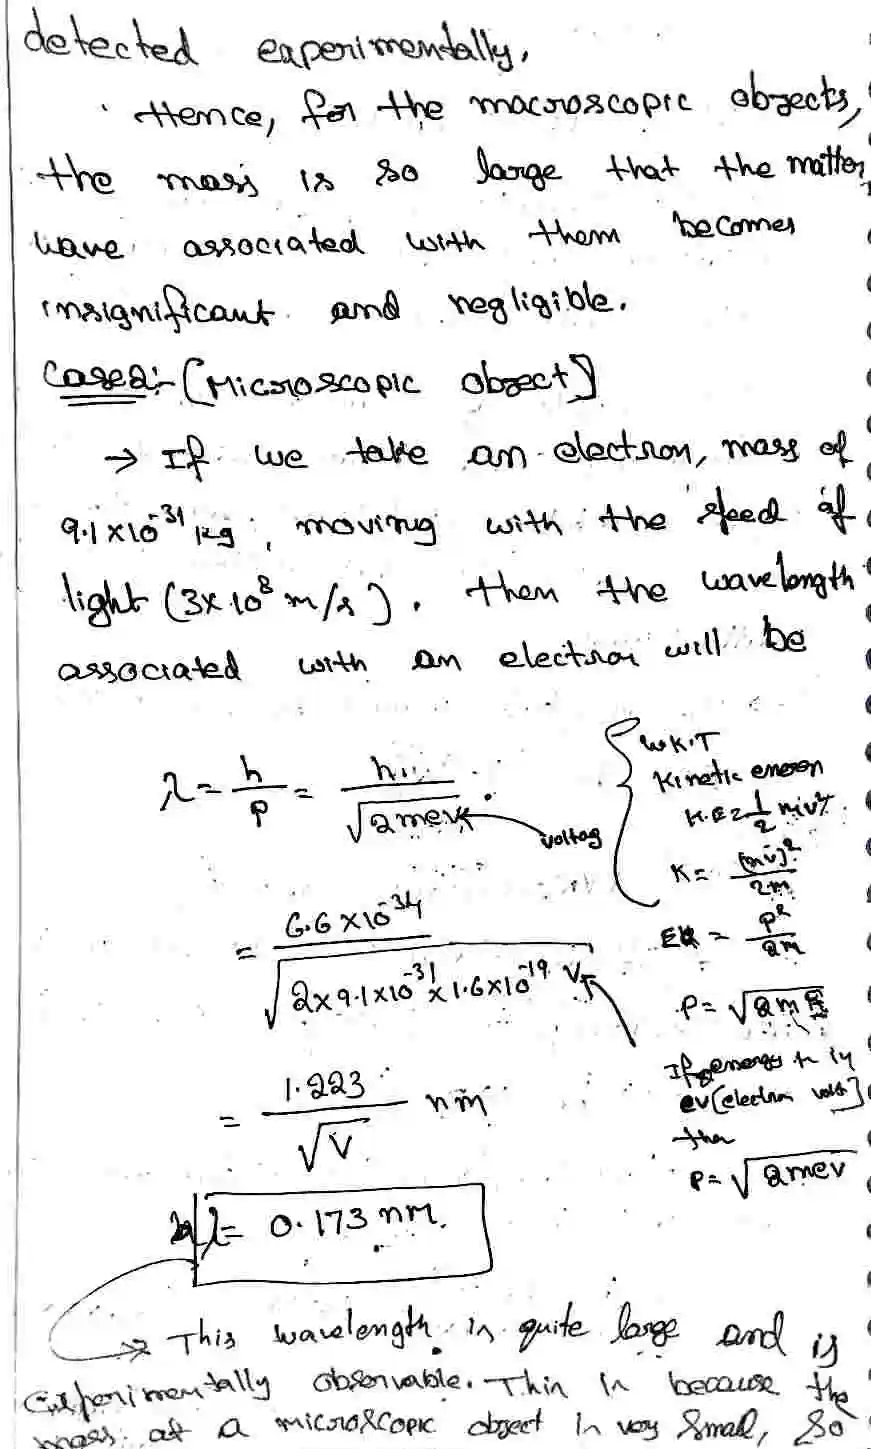 detected experimentally.
Hence, for the macroscopic objects,
the mass is so large that the matter
wave associated with them becomes
insignificant and negligible.
Case2:- [Microscopic object]
→ If we take an electron, mass of
9.1×10^-31 kg, moving with the speed of
light (3×10^8 m/s). then the wavelength
associated with an electron will be
λ = h/p = h/√2mev
voltag
= 6.6×10^-34 / √2×9.1×10^-31×1.6×10^-19 V
= 1.223/√V nm
λ = 0.173 nm.
W.K.T
Kinetic
K.E = 1/2 mv²
K = (mv)²/2m
= p²/2m
P = √2mE
If energy in
ev (electron volt)
then
P = √2mev
→ This wavelength is quite large and is
experimentally observable. This is because the
mass of a microscopic object is very small, so